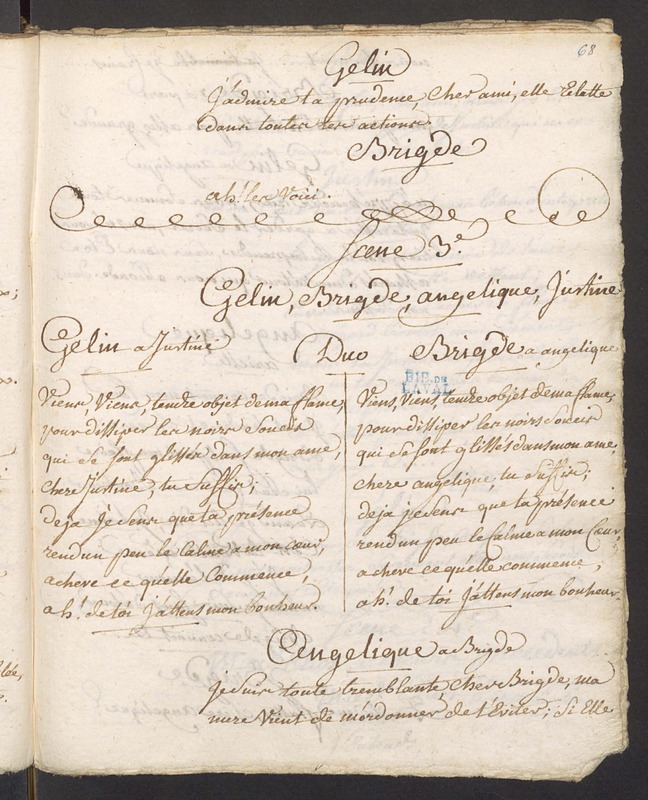 68
Gelin
j'admire ta prudence, cher ami, elle Eclatte
dans toutes tes actions.
Brigde
ah! les Voici.
Scene 3.e
Gelin, Brigde, angelique, Justine
Duo
Gelin a Justine
Viens, Viens, tendre objet de ma flame,
pour dissiper les noirs soucis
qui se sont glissés dans mon ame,
chere Justine, tu suffis;
deja je sens que ta présence
rend un peu le Calme a mon cœur,
acheve ce qu'elle Commence,
ah! de toi j'attens mon bonheur.
Brigde a angelique
BIB. DE
LAVAL
Viens, Viens, tendre objet de ma flame,
pour dissiper les noirs soucis
qui se sont glissés dans mon ame,
chere angelique, tu suffis;
deja je sens que ta présence
rend un peu le Calme a mon Cœur,
acheve ce qu'elle commence,
ah! de toi j'attens mon bonheur.
Angelique a Brigde
je suis toute tremblante, cher Brigde, ma
mere Vient de m'ordonner de t'Eviter; si Elle